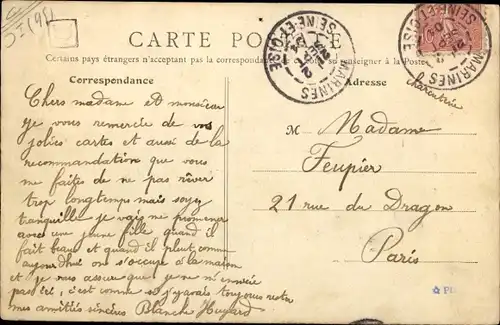 CARTE POSTALE
Certains pays étrangers n'acceptant pas la correspondance se renseigner à la Poste
Correspondance
Adresse
MARINES
SEINE-ET-OISE
MARINES
SEINE-ET-OISE
Chers madame et monsieur
je vous remercie de vos
jolies cartes et aussi de la
recommandation que vous
me faites de ne pas rêver
trop longtemps mais soyez
tranquille je vais me promener
avec une jeune fille quand il
fait beau et quand il pleut comme
aujourd'hui on s'occupe à la maison
et je vous assure que je ne m'ennuie
pas ici, c'est comme si j'y avais toujours restée
mes amitiés sincères Blanche Huyard
M Madame
Feupier
21 rue du Dragon
Paris